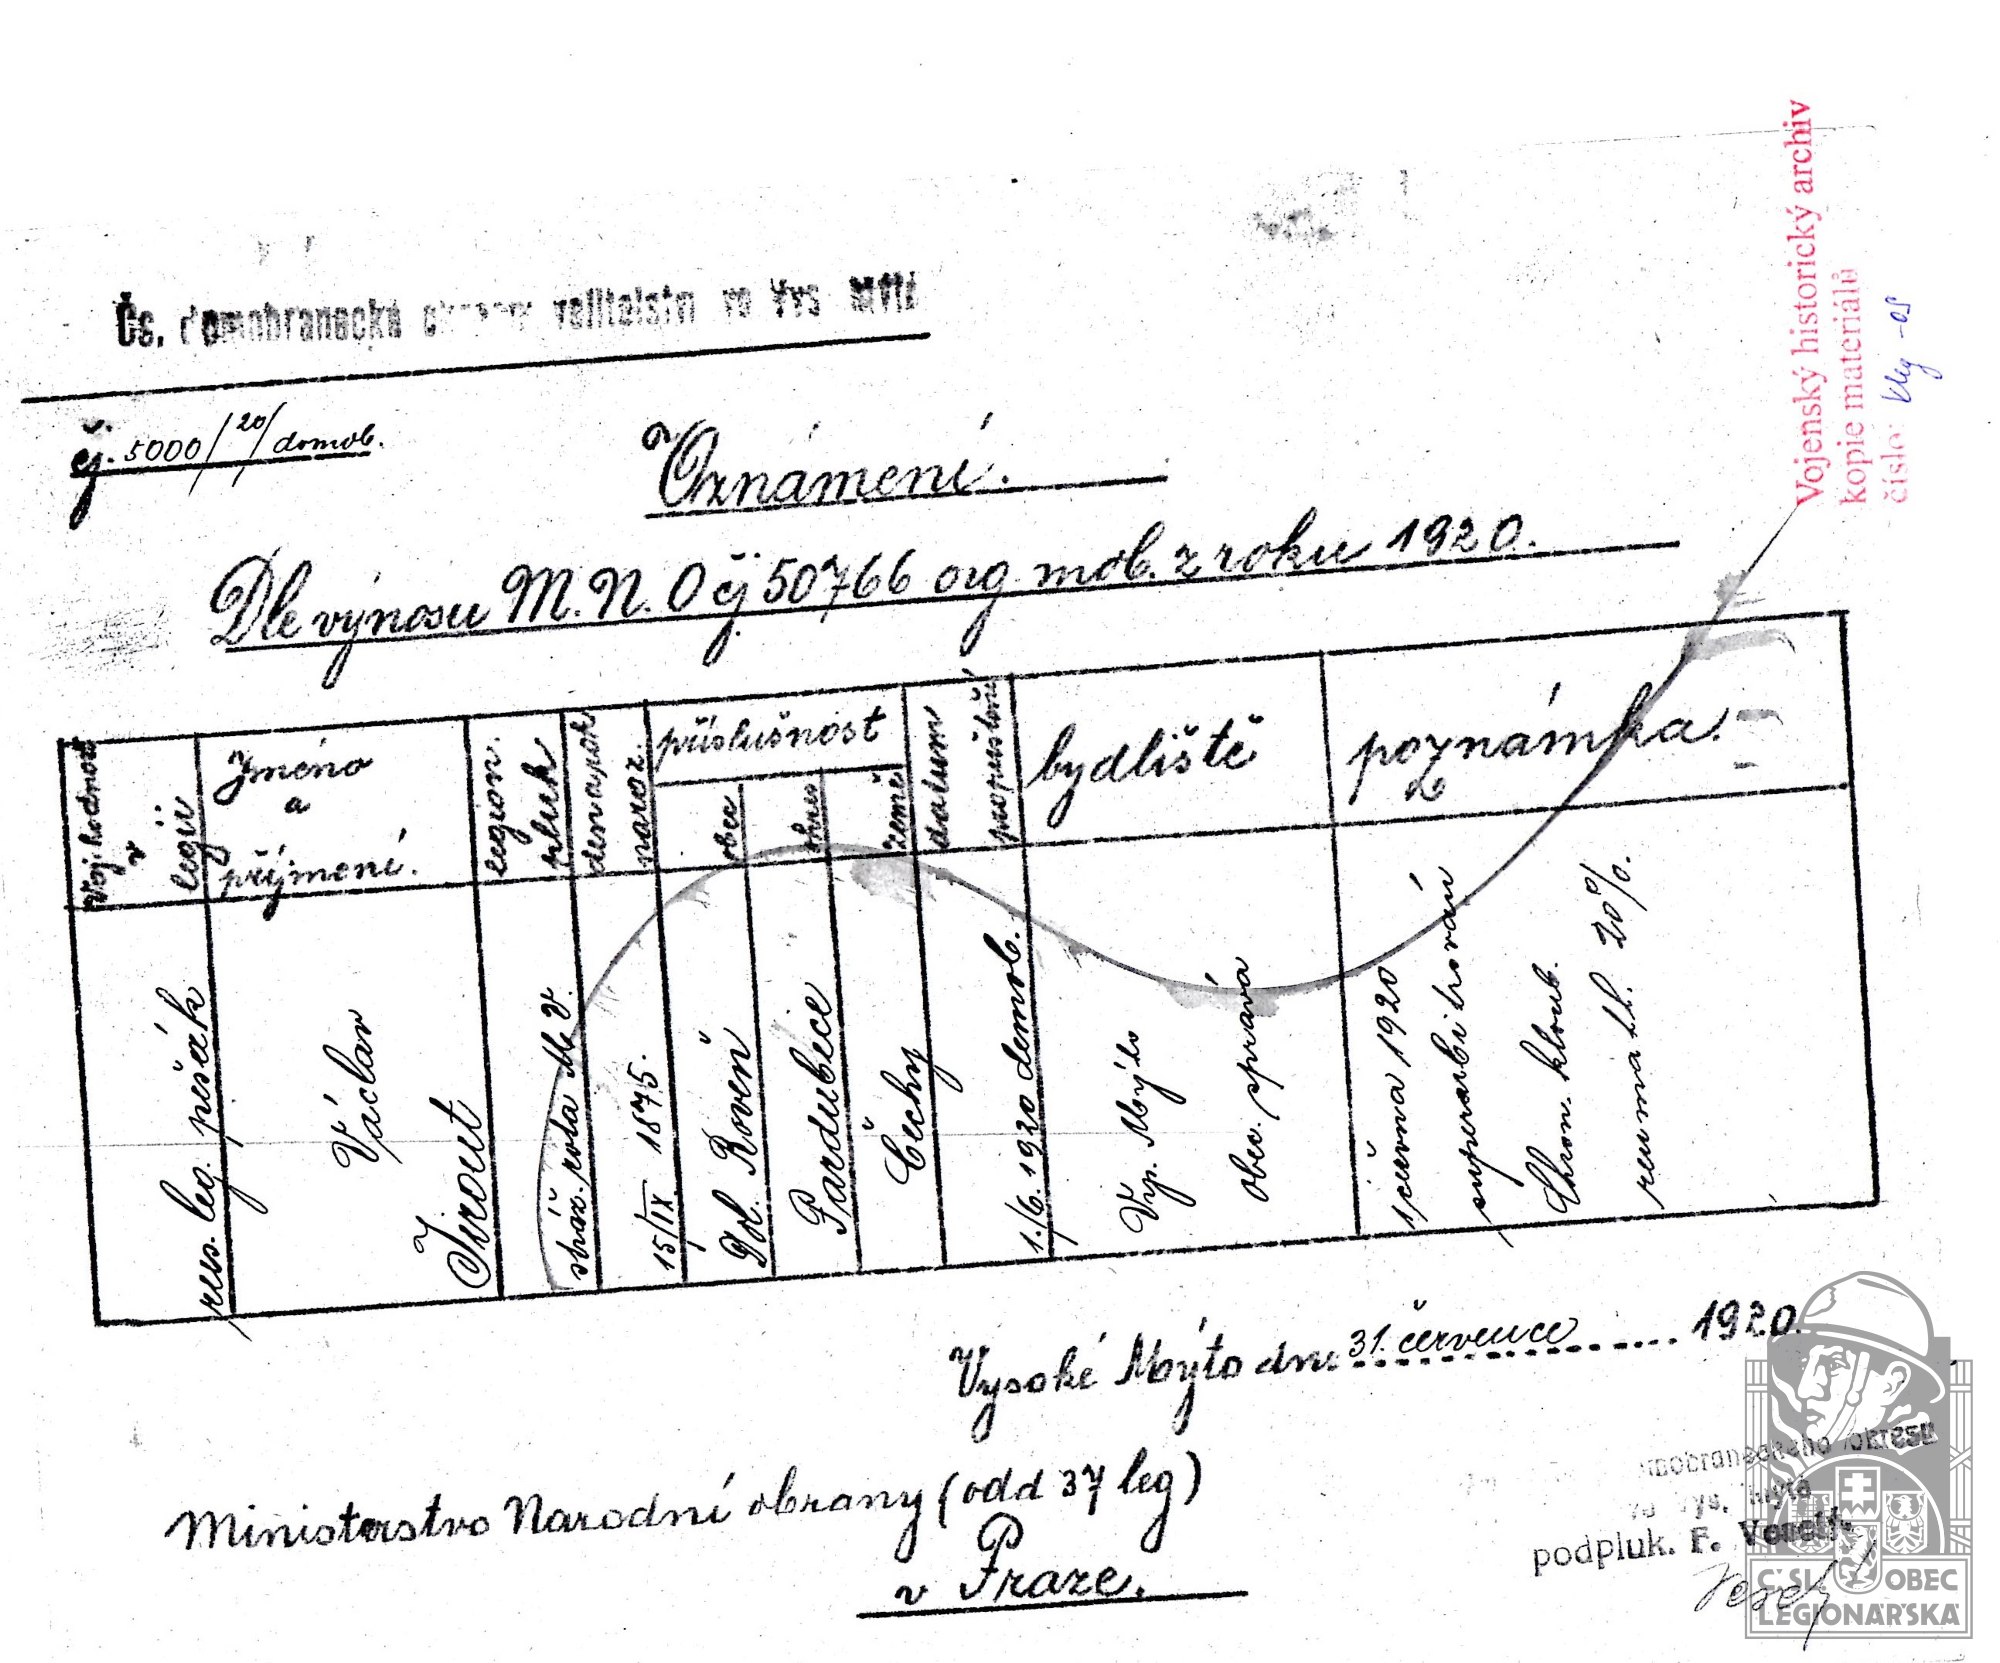 Vojenský historický archiv
kopie materiálů
číslo:
Čs. domobranecké velitelství ve Vys Mýtě
čj. 5000/20/domob.
Oznámení.
Dle výnosu M.N.O čj 50766 org. mob. z roku 1920.
Voj. hodnost v legii
Jméno a příjmení.
legion. pluk
den a rok naroz.
příslušnost
obec
okres
země
datum propuštění
bydliště
poznámka.
rus. leg. pěšák
Václav
Jirout
stráž. rota M.V.
15/IX. 1875.
Dol. Roveň
Pardubice
Čechy
1./6. 1920 demob.
Vys. Mýto
obec. správa
1 června 1920
superarbitrován
Chron. kloub.
reumat. 20%.
Vysoké Mýto dne 31. července 1920.
Ministerstvo Národní obrany (odd 37 leg)
v Praze.
okresu
podpluk. F.
ČSL. OBEC
LEGIONÁŘSKÁ